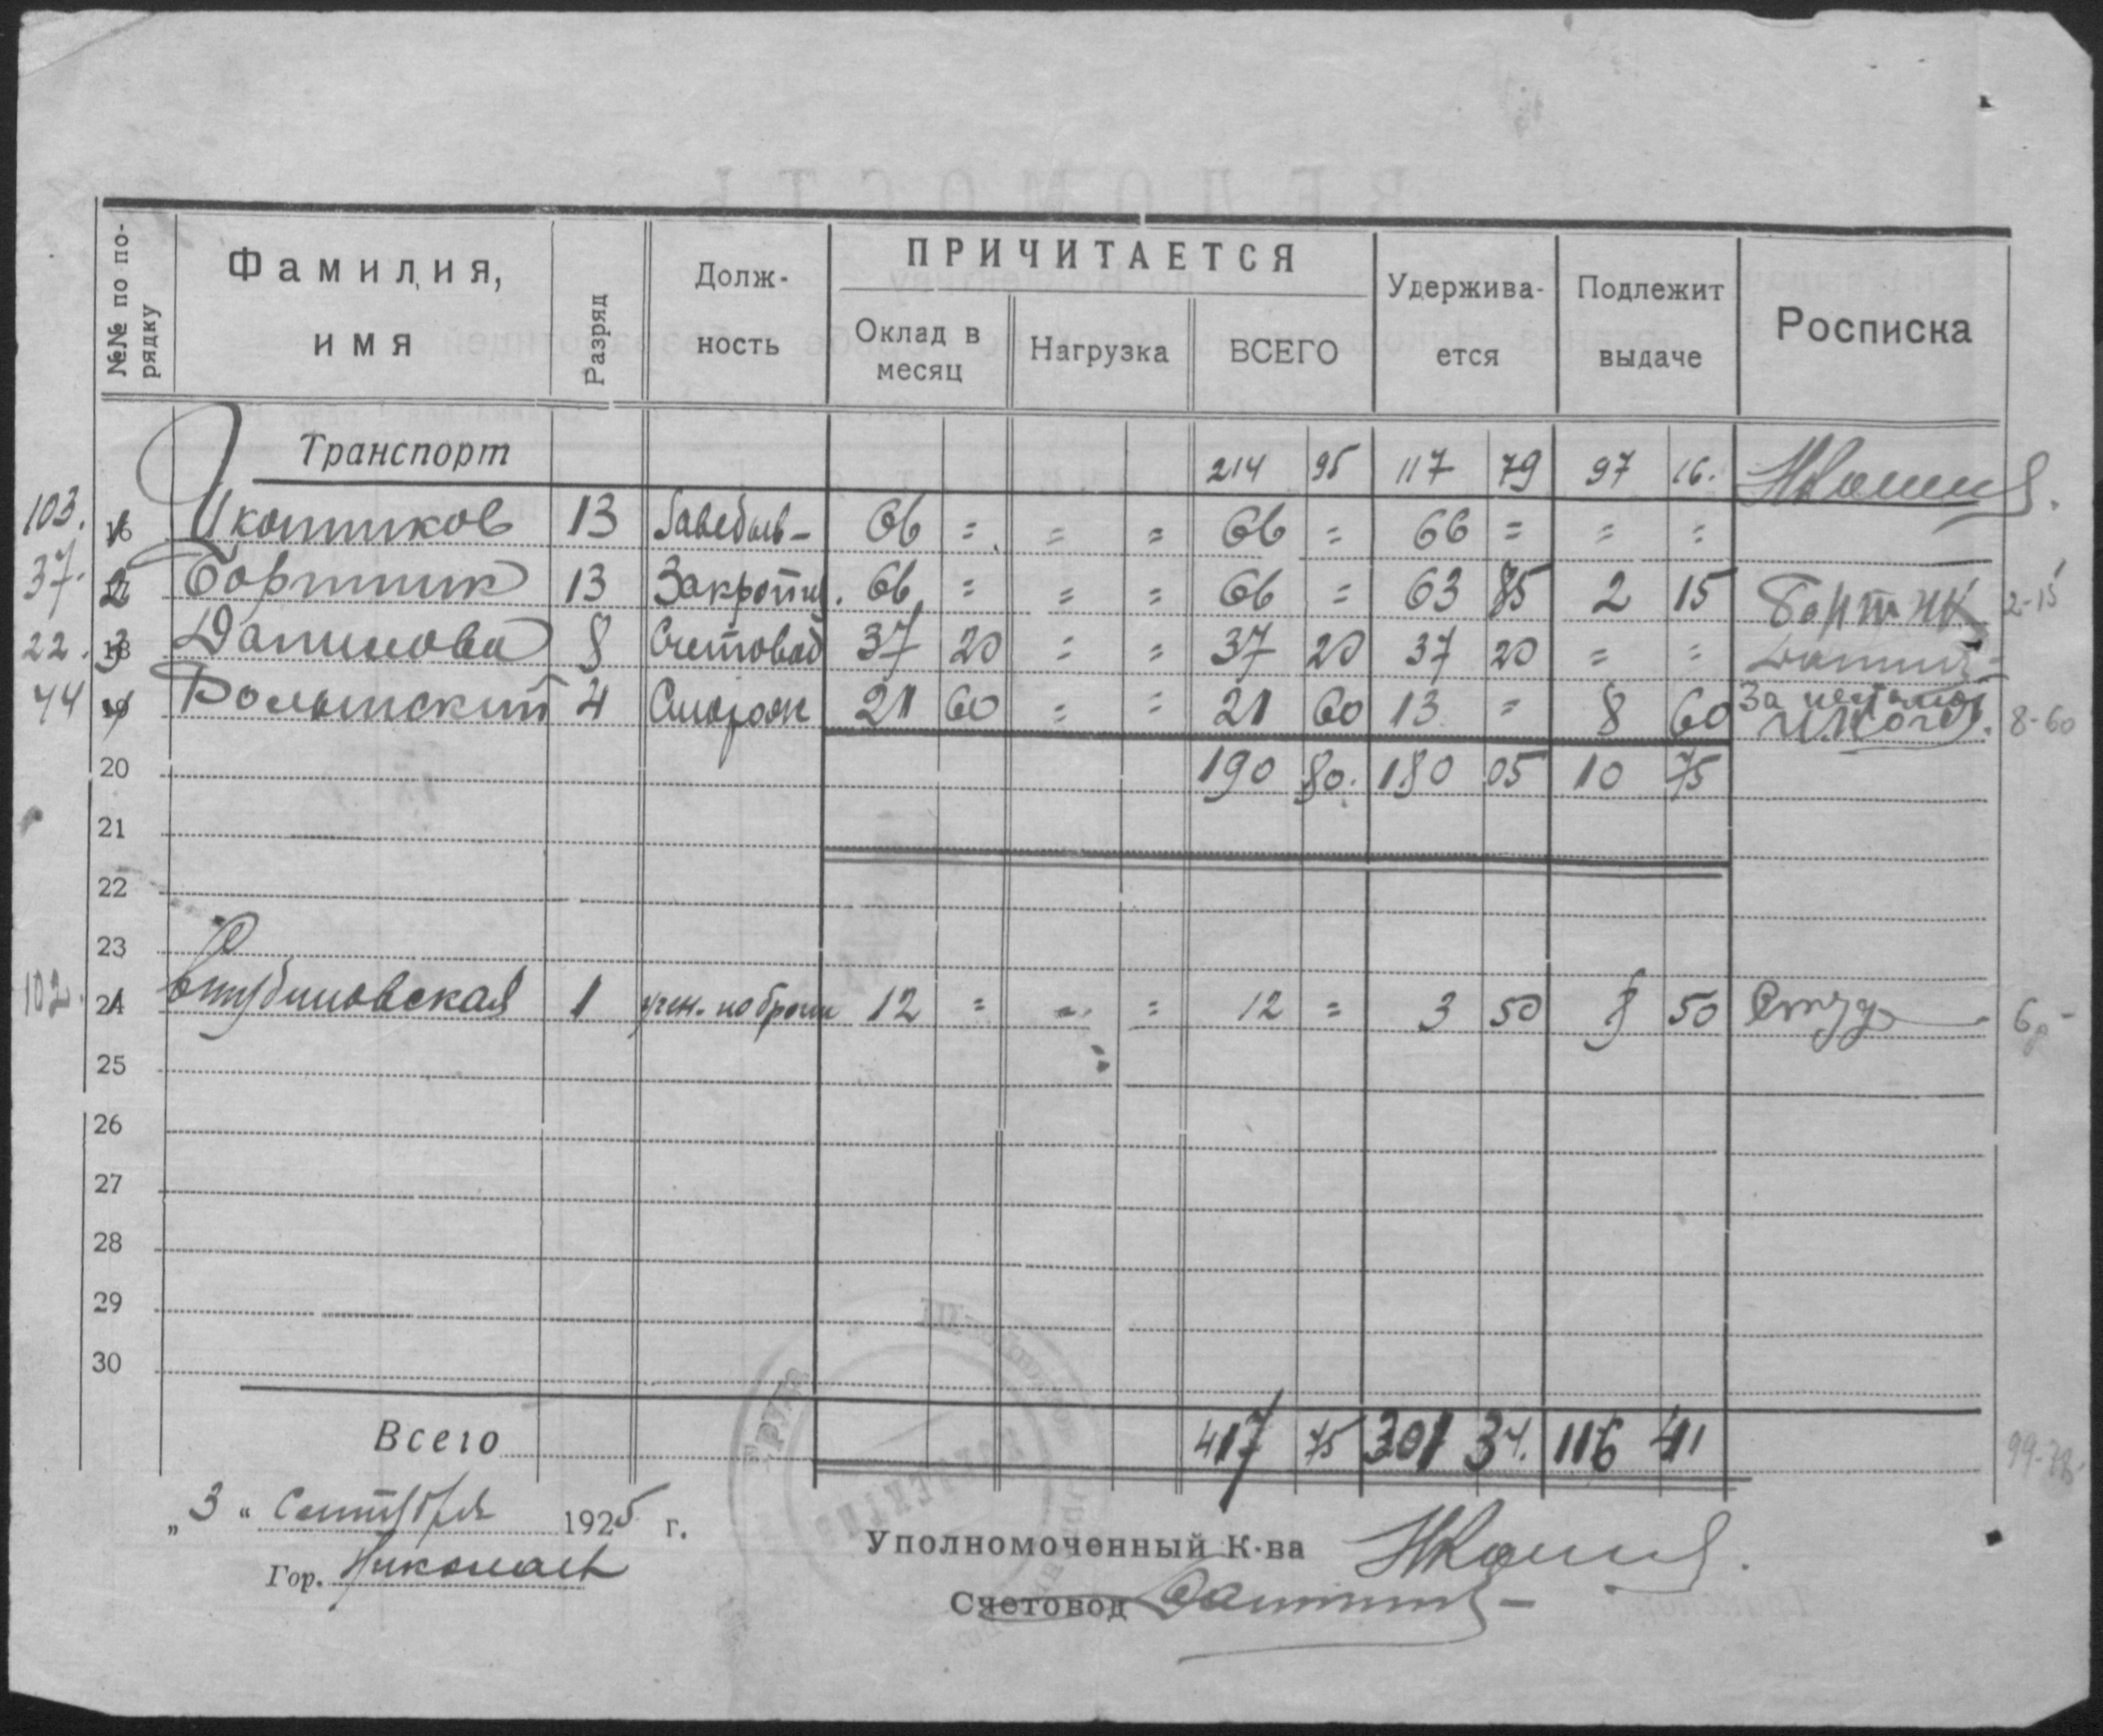 №№ по по-рядку
Фамилия, имя
Разряд
Долж-ность
ПРИЧИТАЕТСЯ
Оклад в месяц
Нагрузка
ВСЕГО
Удержива-ется
Подлежит выдаче
Росписка
Транспорт 214 95 117 79 97 16.
103. 13 66 = = = 66 = 66 = = =
37. 2 Бортник 13 66 = = = 66 = 63 85 2 15 Бортник 2-15
22. 3 8 Счетовод 37 20 = = 37 20 37 20 = =
44 4 Волынский 4 Сторож 21 60 = = 21 60 13 = 8 60 За 8-60
20 190 80. 180 05 10 75
21
22
23
102. 1 1 учен. по брони 12 = = = 12 = 3 50 8 50
25
26
27
28
29
30
Всего 417 75 301 34. 116 41
„ 3 “ Сентября 1925 г.
Гор. Николаев
Уполномоченный К-ва
Счетовод